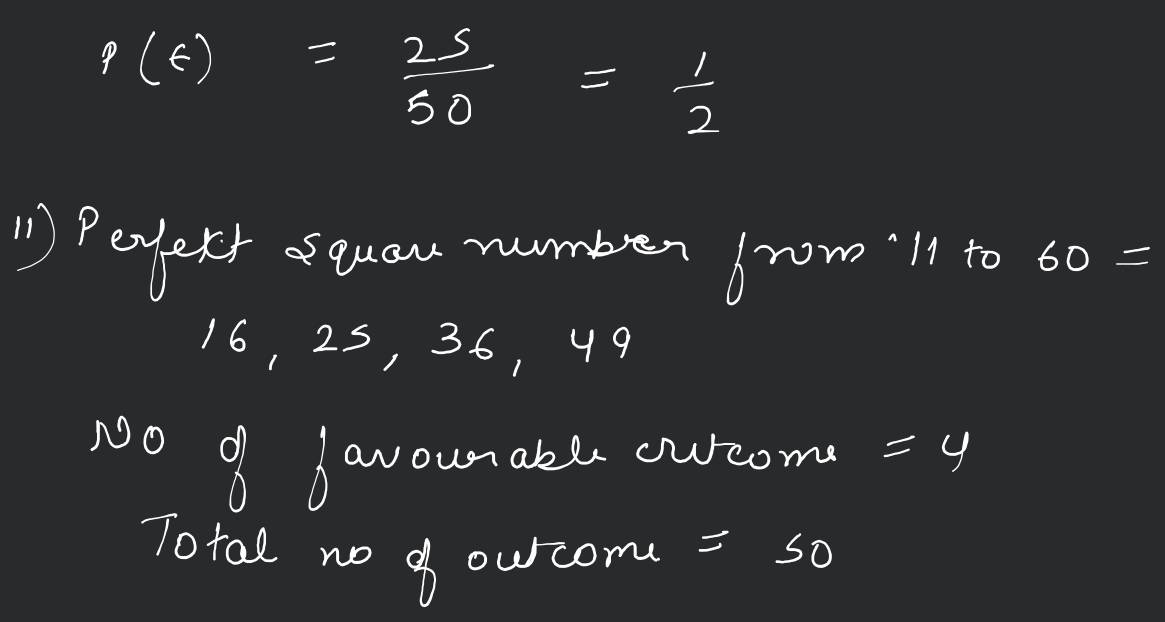 P(E) = 25/50 = 1/2
11) Perfekt square number from "11 to 60 =
16, 25, 36, 49
NO of favourable outcome = 4
Total no of outcome = 50